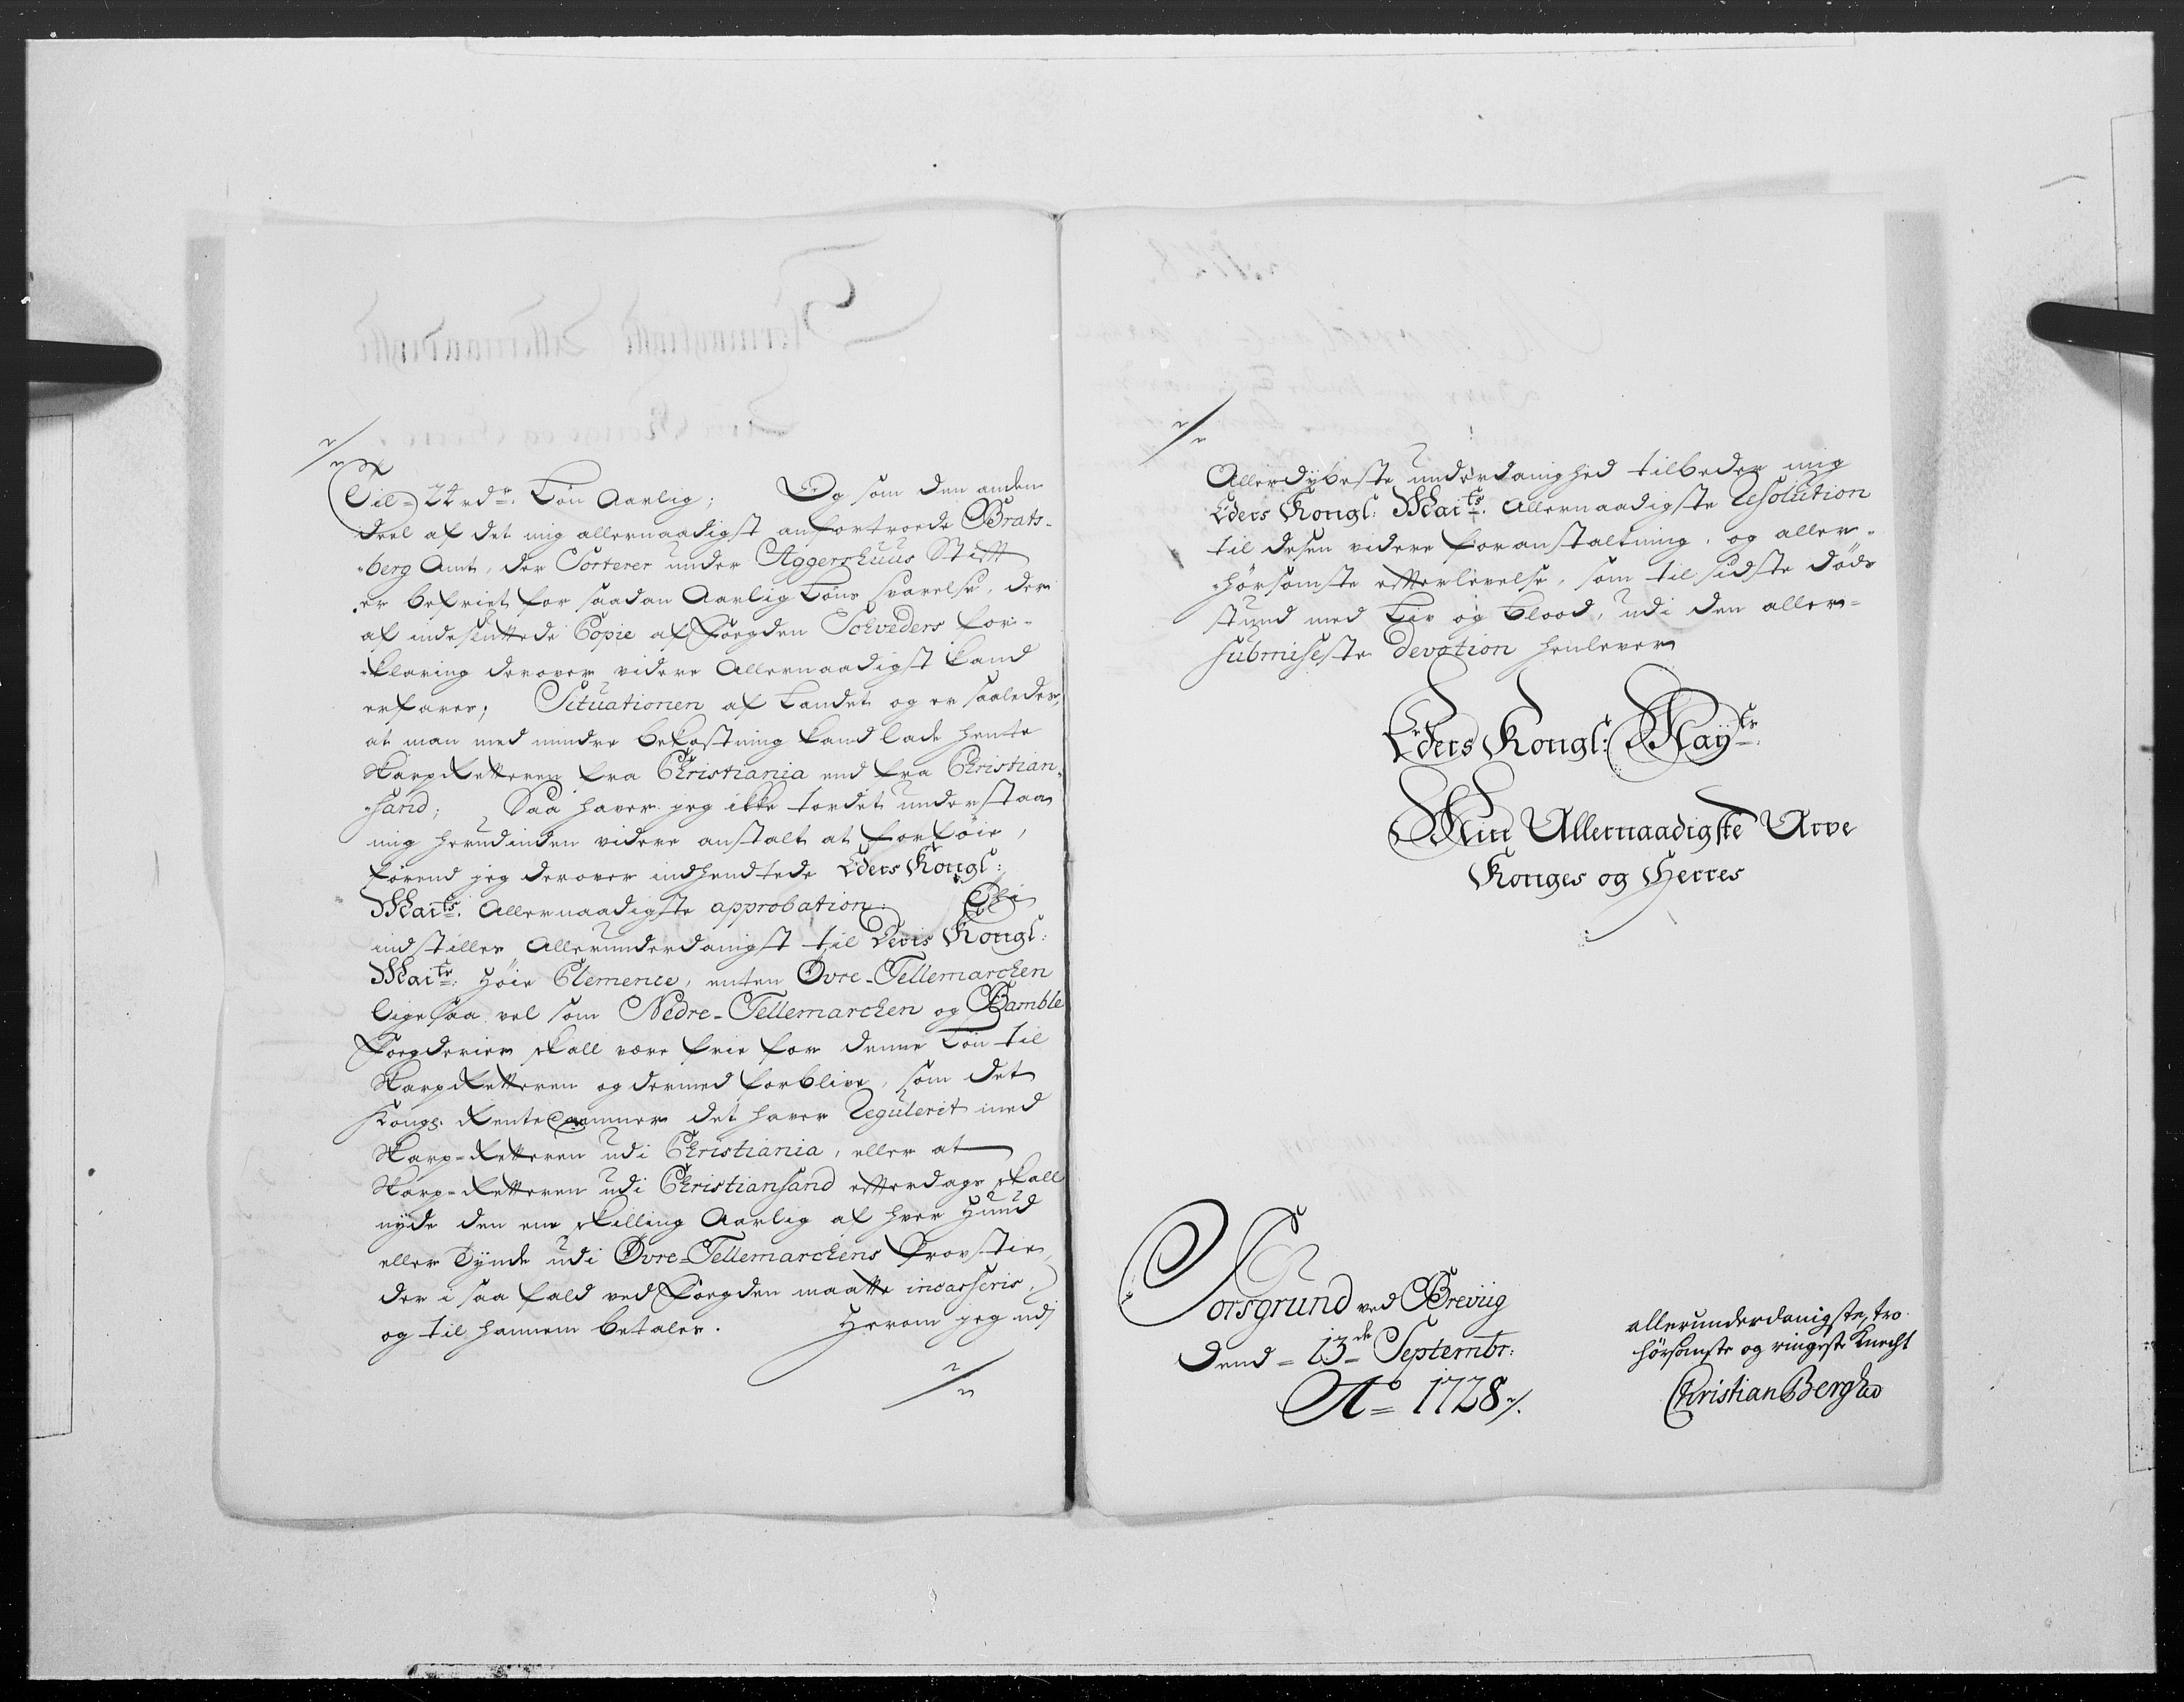 Til 24 rdr. Løn Aarlig; Og som den anden
deel af det mig allernaadigst anfortroede Brats-
berg Amt, der Sorterer under Aggershuus Stift
er befriet for saadan Aarlig Løns svarelse, der
af indesluttede Copie af Foegden Solveders for-
klaring derover videre Allernaadigst kand
erfares; Situationen af Landet og er saaledes,
at man med mindre bekostning kand lade hente
SkarpRetteren fra Christiania end fra Christian-
sand; Saa haver jeg ikke tordet understaa
mig herudinden videre anstalt at forføie,
førend jeg derover indhendtede Eders Kongl:
Maits. Allernaadigste approbation.
indstilles Allerunderdanigst til Deris Kongl:
Maits: Høie Clemence, enten Øvre-Tellemarchen
lige saa vel som Nedre-Tellemarchen og Bamble
Foegderier skall være frie for denne Løn til
SkarpRetteren og dermed forblive, som det
Kongl. RenteCammer det haver Regulerit med
Skarp-Retteren udi Christiania, eller at
Skarp-Retteren udi Christiansand efterdags skall
nyde den ene skilling Aarlig af hver Hund
eller Tynde udi Øvre-Tellemarchens Provstie,
der i saa fald ved Foegden maatte incasseris,
og til hannem betales. Herom jeg udi
Allerdybeste underdanighed tilbeder mig
Eders Kongl: Maits. Allernaadigste Resolution
til desen videre foranstaltning, og aller-
hørsomste efterlevelse, som til sidste døds
stund med Liv og Blood, udi den aller-
submisseste Devotion henlever
Eders Kongl: Mayts.
Min Allernaadigste Arve
Konges og Herres
Porsgrund ved Breviig
Dend 13de Septembr:
Ao 1728
allerunderdanigste, tro
hørsomste og ringeste Knecht
Christian Bergh